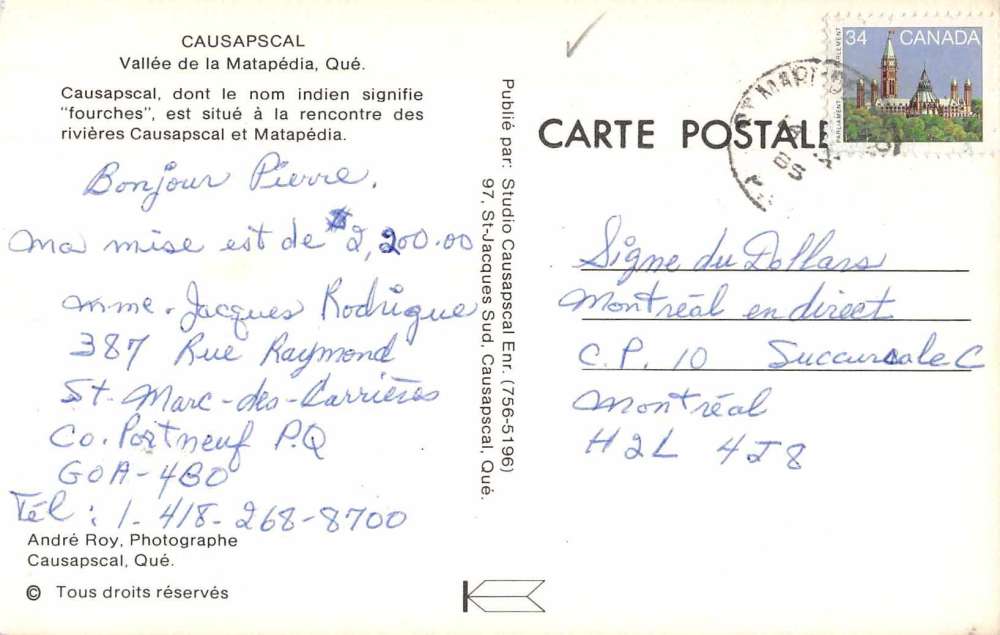 CAUSAPSCAL
Vallée de la Matapédia, Qué.
Causapscal, dont le nom indien signifie
"fourches", est situé à la rencontre des
rivières Causapscal et Matapédia.
Bonjour Pierre,
Ma mise est de $2,200.00
Mme. Jacques Rodrigue
387 Rue Raymond
St-Marc-des-Carrières
Co. Portneuf P.Q
GOA-4BO
Tél: 1-418-268-8700
André Roy, Photographe
Causapscal, Qué.
© Tous droits réservés
Publié par: Studio Causapscal Enr. (756-5196)
97, St-Jacques Sud, Causapscal, Qué.
CARTE POSTALE
34 CANADA
PARLIAMENT
PARLEMENT
ST MARC
85
Signe du Dollars
Montréal en direct
C.P. 10 Succursale C
Montréal
H2L 4J8